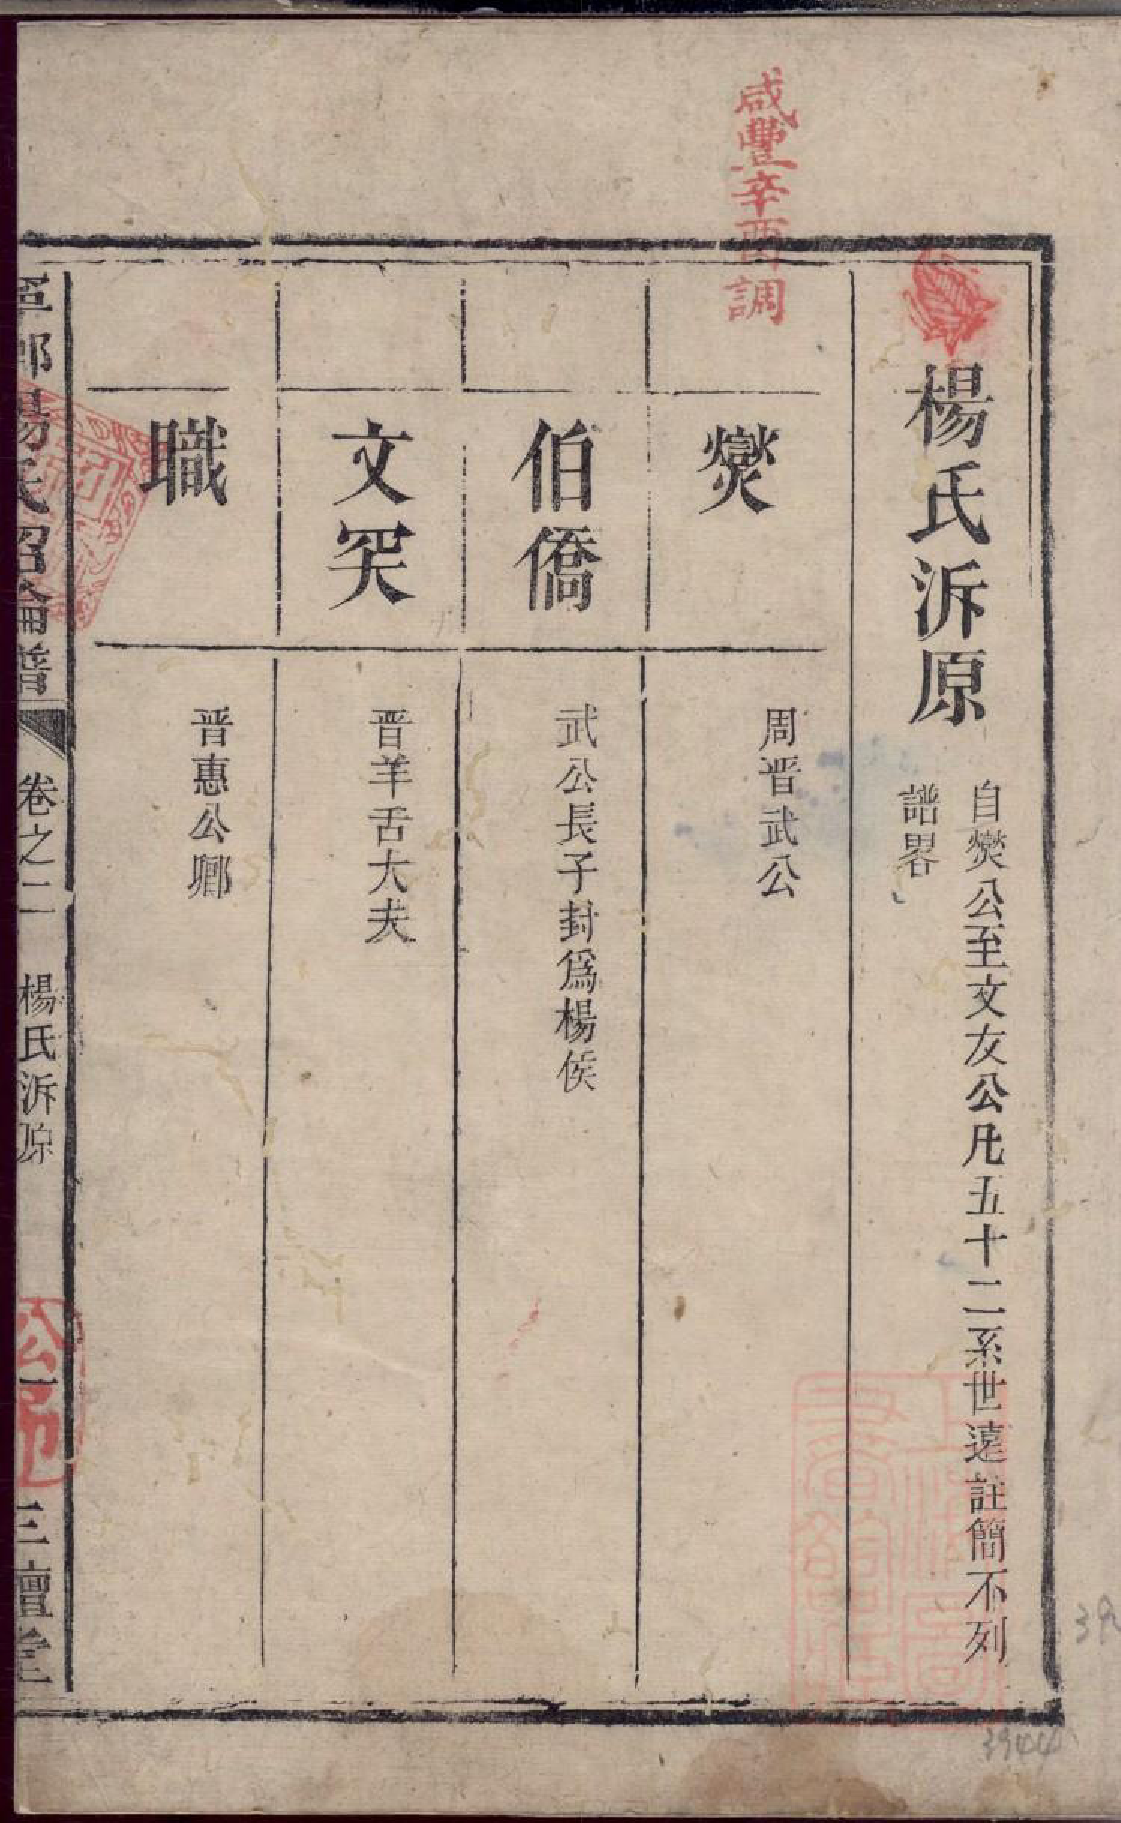 咸豐辛酉調
楊氏泝原
自爕公至文友公凡五十二系世遠註簡不列
譜畧
爕
周晋武公
伯僑
武公長子封爲楊侯
文罙
晋羊舌大夫
職
晋惠公卿
郡楊氏紹倫譜
卷之二
楊氏泝原
一
三鱣堂
3944